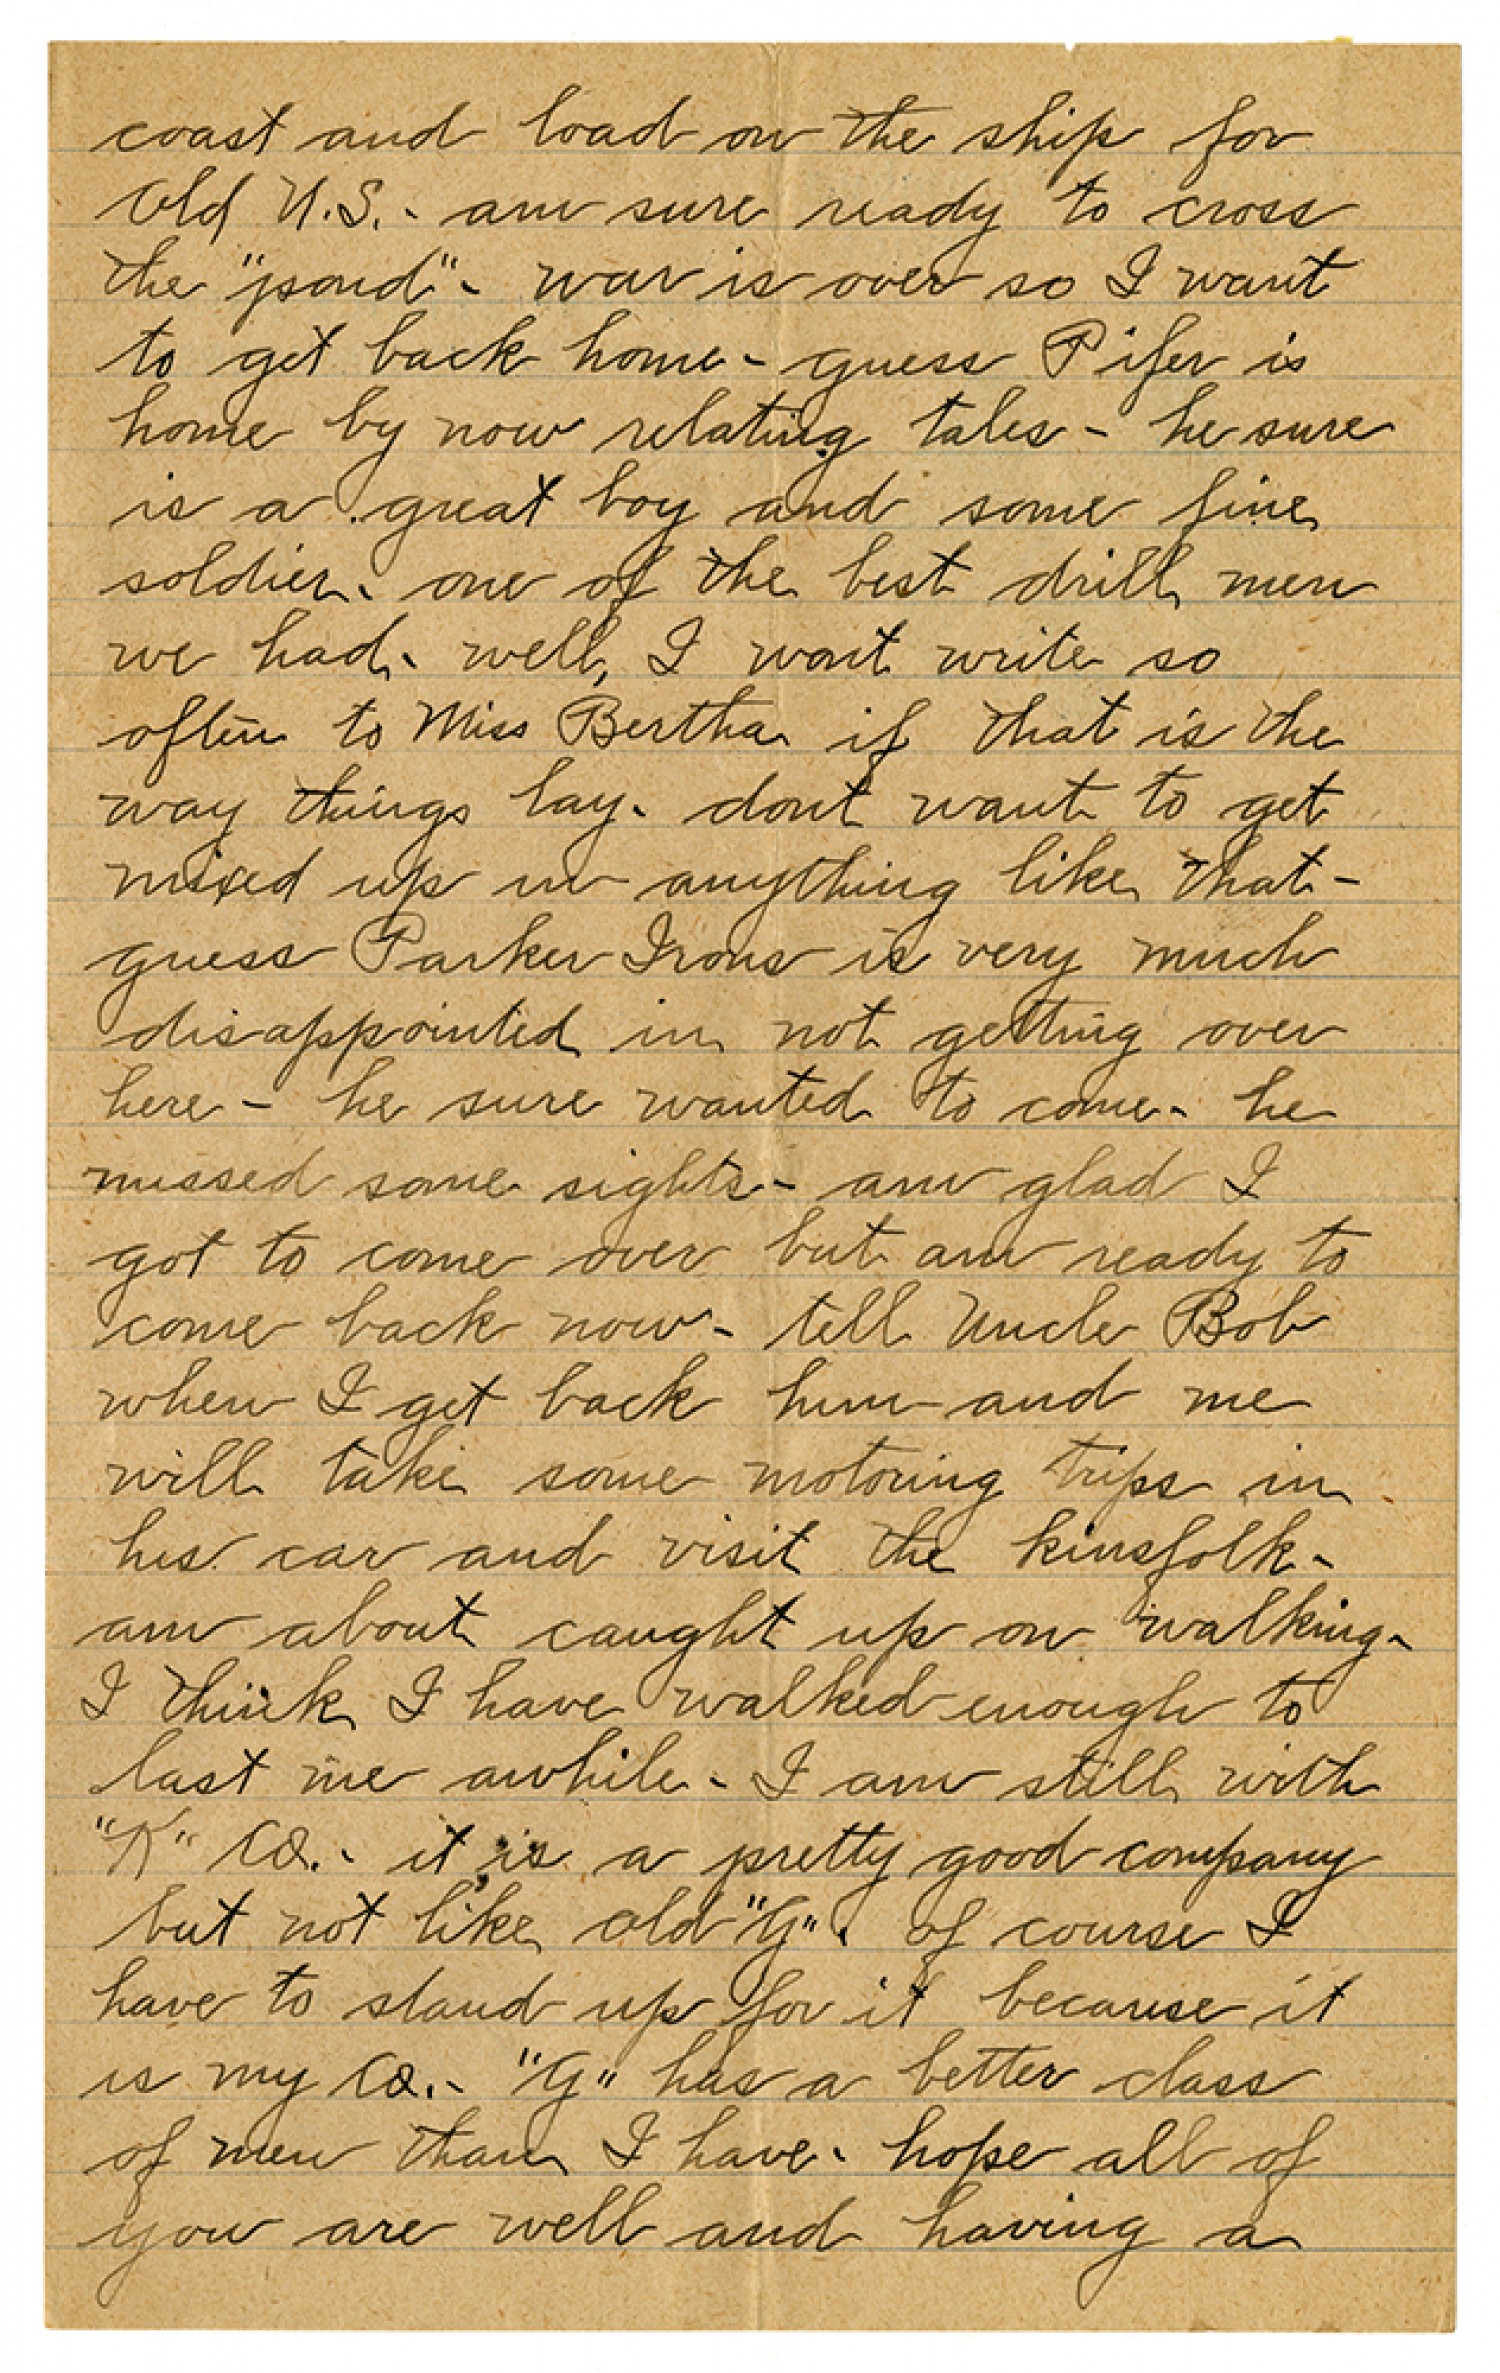 coast and load on the ship for
Old U.S. - am sure ready to cross
the "pond" - war is over so I want
to get back home - guess Pifer is
home by now relating tales - he sure
is a great boy and some fine
soldier - one of the best drill men
we had - well, I wont write so
often to Miss Bertha if that is the
way things lay - dont want to get
mixed up in anything like that -
guess Parker Irons is very much
disappointed in not getting over
here - he sure wanted to come - he
missed some sights - am glad I
got to come over but am ready to
come back now - tell Uncle Bob
when I get back him and me
will take some motoring trips in
his car and visit the kinsfolk -
am about caught up on walking -
I think I have walked enough to
last me awhile - I am still with
"K" Co. - it is a pretty good company
but not like old "G". of course I
have to stand up for it because it
is my Co. - "G" has a better class
of men than I have - hope all of
you are well and having a